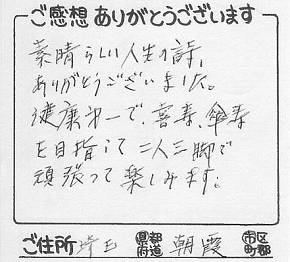 ご感想 ありがとうございます
素晴らしい人生の詩、
ありがとうございました。
健康第一で、喜寿、傘寿
を目指して二人三脚で
頑張って楽しみます。
ご住所 埼玉 都道府県 朝霞 市区町郡